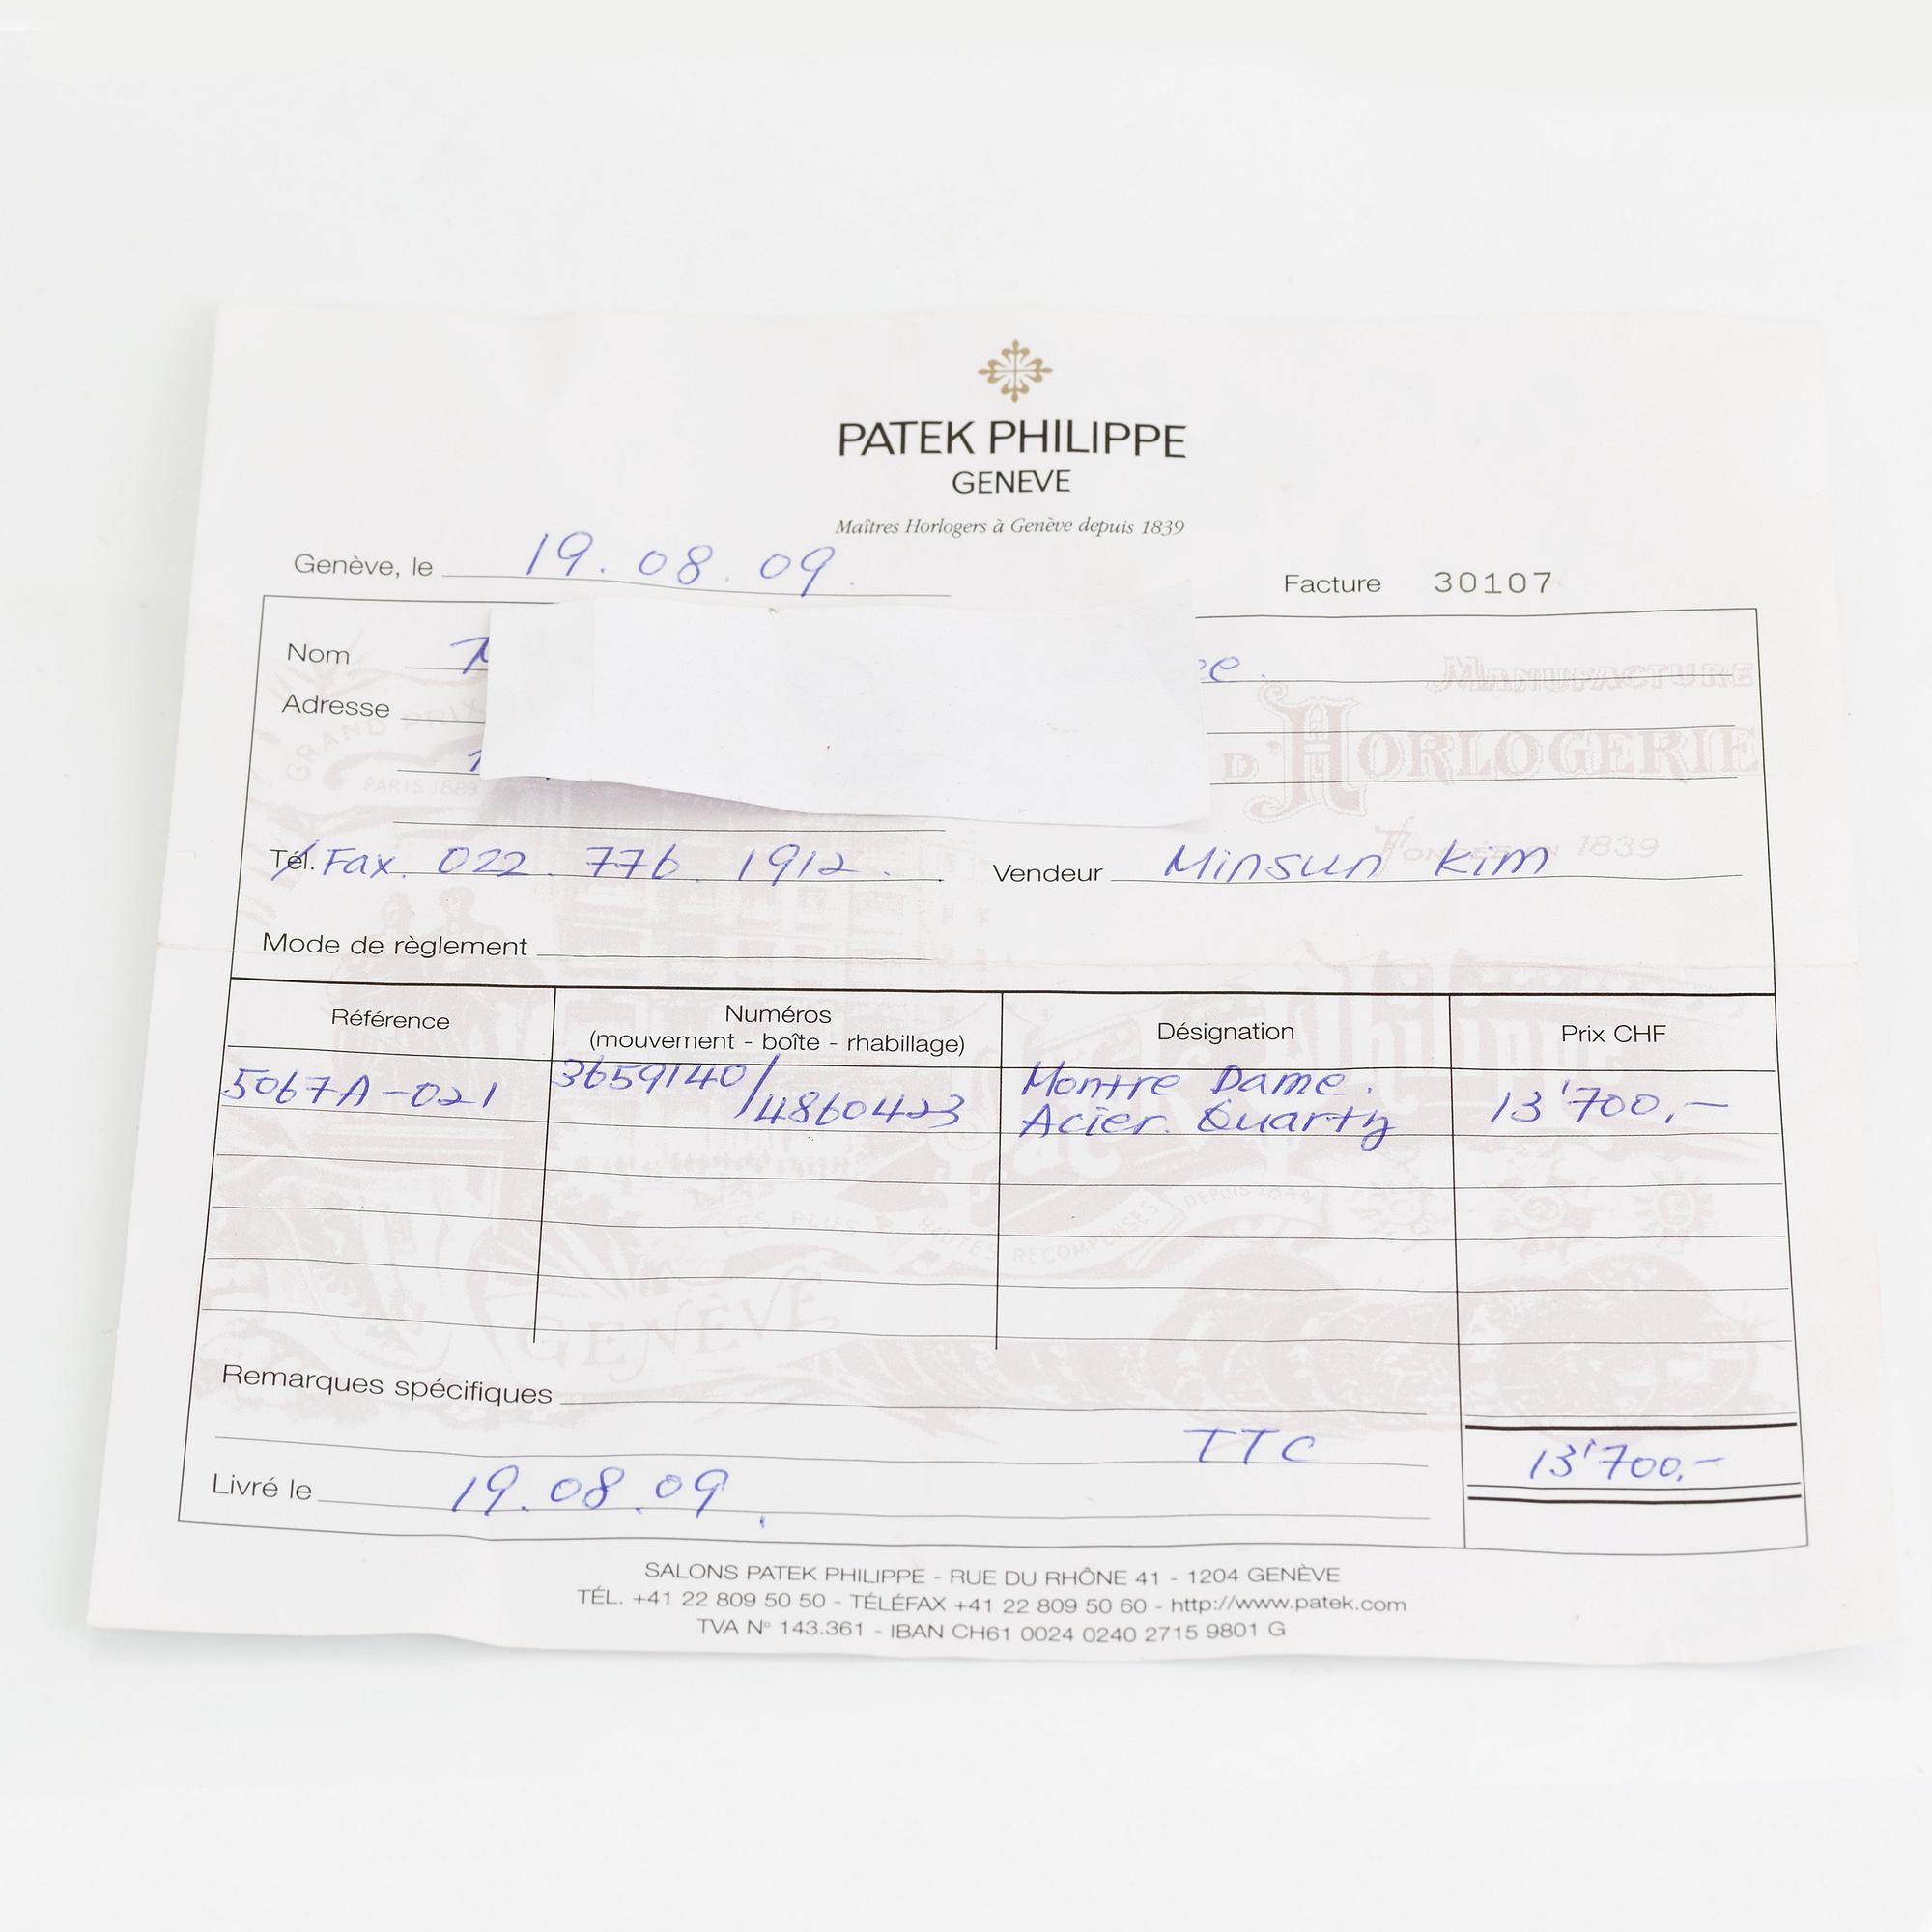 PATEK PHILIPPE
GENEVE
Maîtres Horlogers à Genève depuis 1839
Genève, le 19.08.09.
Facture 30107
Nom
Adresse
MANUFACTURE
D'HORLOGERIE
GRAND PRIX
PARIS 1889
1839
Tél. Fax. 022 776 1912.
Vendeur Minsun Kim
Mode de règlement
Référence Numéros Désignation Prix CHF
(mouvement - boîte - rhabillage)
5067A-021 3659140/ Montre Dame. 13'700,-
4860423 Acier Quartz
DEPUIS 1844
LES PLUS HAUTES RECOMPENSES
GENÈVE
Remarques spécifiques
TTC 13'700.-
Livré le 19.08.09
SALONS PATEK PHILIPPE - RUE DU RHÔNE 41 - 1204 GENÈVE
TÉL. +41 22 809 50 50 - TÉLÉFAX +41 22 809 50 60 - http://www.patek.com
TVA Nº 143.361 - IBAN CH61 0024 0240 2715 9801 G